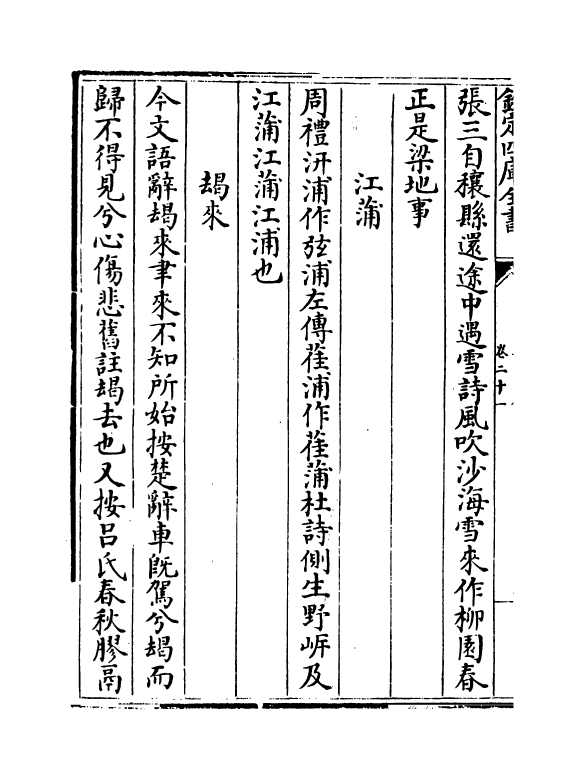 欽定四庫全書
卷二十一
張三自穰縣還途中遇雪詩風吹沙海雪來作柳園春
正是梁地事
江蒲
周禮汧浦作弦浦左傳萑浦作萑蒲杜詩側生野岸及
江蒲江蒲江浦也
朅來
今文語辭朅來聿來不知所始按楚辭車旣駕兮朅而
歸不得見兮心傷悲舊註朅去也又按呂氏春秋膠鬲